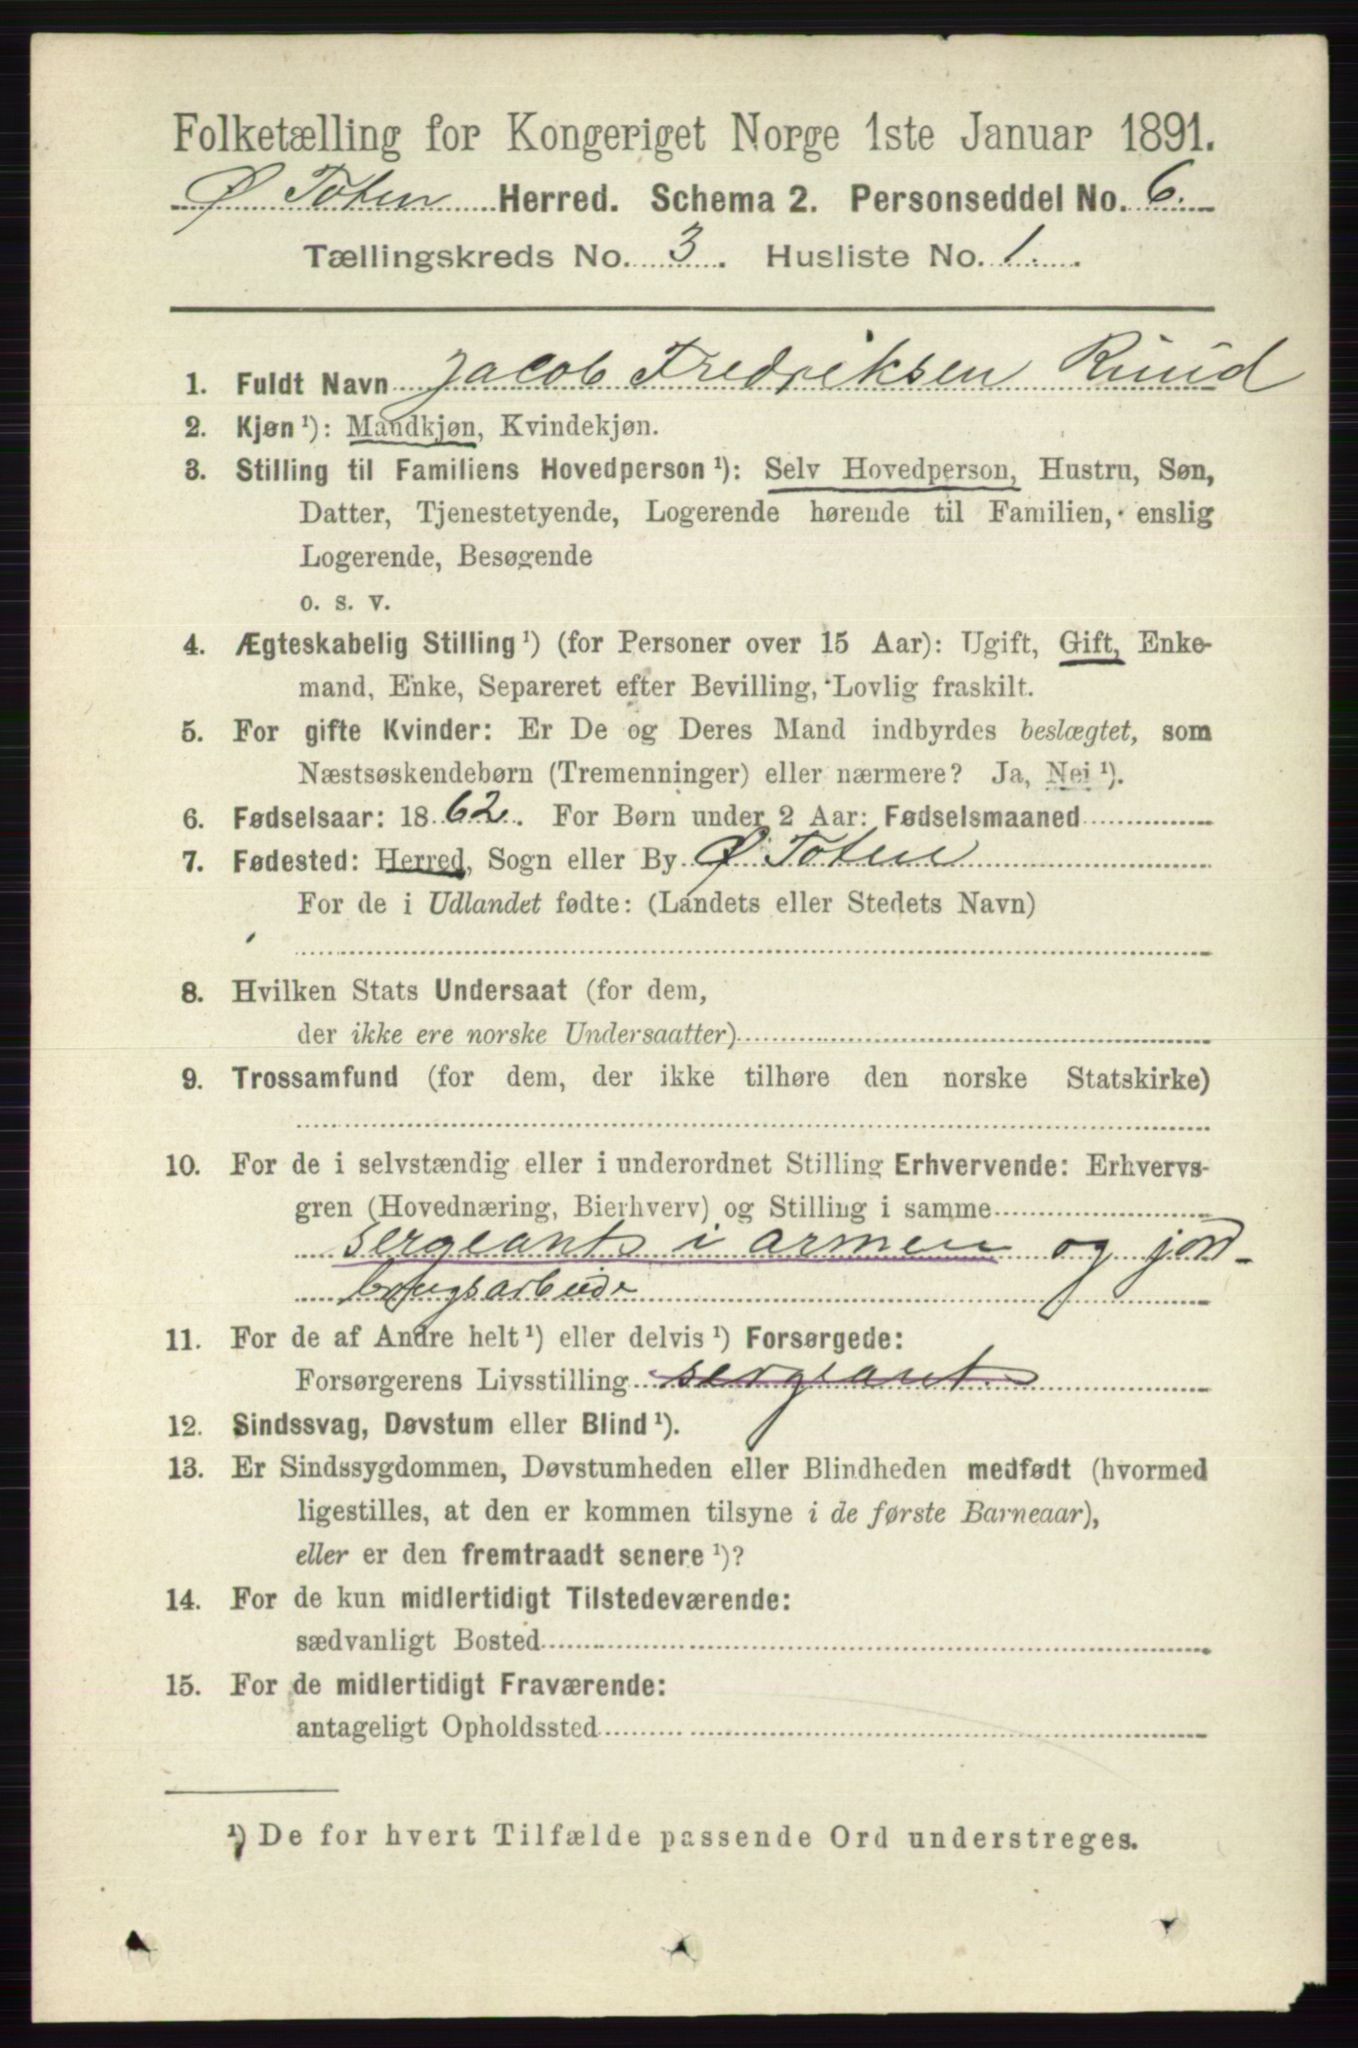 Folketælling for Kongeriget Norge 1ste Januar 1891.
Ø Toten Herred. Schema 2. Personseddel No. 6.
Tællingskreds No. 3. Husliste No. 1.
1. Fuldt Navn Jacob Fredriksen Ruud
2. Kjøn ¹): Mandkjøn, Kvindekjøn.
3. Stilling til Familiens Hovedperson ¹): Selv Hovedperson, Hustru, Søn,
Datter, Tjenestetyende, Logerende hørende til Familien, enslig
Logerende, Besøgende
o. s. v.
4. Ægteskabelig Stilling ¹) (for Personer over 15 Aar): Ugift, Gift, Enke-
mand, Enke, Separeret efter Bevilling, Lovlig fraskilt.
5. For gifte Kvinder: Er De og Deres Mand indbyrdes beslægtet, som
Næstsøskendebørn (Tremenninger) eller nærmere? Ja, Nei ¹).
6. Fødselsaar: 1862. For Børn under 2 Aar: Fødselsmaaned
7. Fødested: Herred, Sogn eller By Ø Toten
For de i Udlandet fødte: (Landets eller Stedets Navn)
8. Hvilken Stats Undersaat (for dem,
der ikke ere norske Undersaatter)
9. Trossamfund (for dem, der ikke tilhøre den norske Statskirke)
10. For de i selvstændig eller i underordnet Stilling Erhvervende: Erhvervs-
gren (Hovednæring, Bierhverv) og Stilling i samme
sergeants i armen og jord-
brugsarbeide
11. For de af Andre helt ¹) eller delvis ¹) Forsørgede:
Forsørgerens Livsstilling sergeants
12. Sindssvag, Døvstum eller Blind ¹).
13. Er Sindssygdommen, Døvstumheden eller Blindheden medfødt (hvormed
ligestilles, at den er kommen tilsyne i de første Barneaar),
eller er den fremtraadt senere ¹)?
14. For de kun midlertidigt Tilstedeværende:
sædvanligt Bosted
15. For de midlertidigt Fraværende:
antageligt Opholdssted
¹) De for hvert Tilfælde passende Ord understreges.